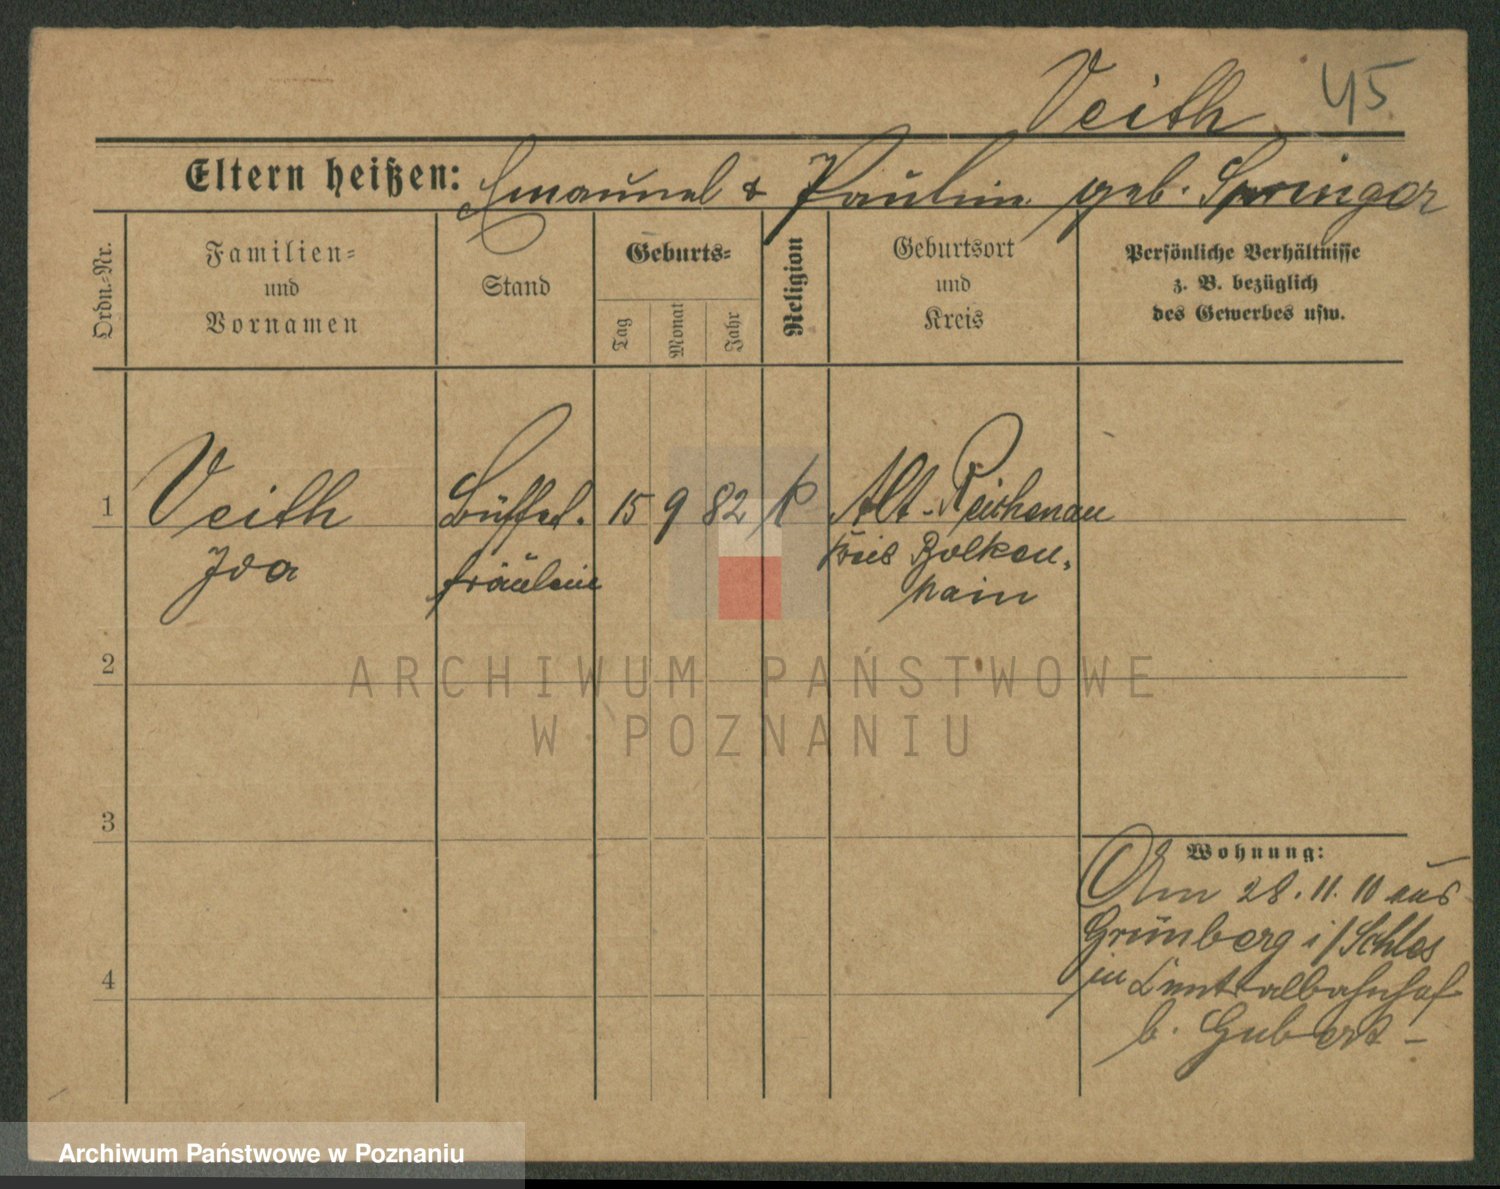 Veith 45
Eltern heißen: Emanuel & Paulin geb. Springer
Ordn.-Nr.
Familien-
und
Vornamen
Stand
Geburts-
Tag
Monat
Jahr
Religion
Geburtsort
und
Kreis
Persönliche Verhältnisse
z. B. bezüglich
des Gewerbes usw.
1 Veith Büffet. 15 9 82 k Alt-Reichenau
Ida fräulein Kreis Bolken-
hain
2
ARCHIWUM PAŃSTWOWE
W POZNANIU
3
Wohnung:
Am 28.11.10 aus
Grünberg i/Schles
in Centralbahnhof
4
b. Gubert -
Archiwum Państwowe w Poznaniu